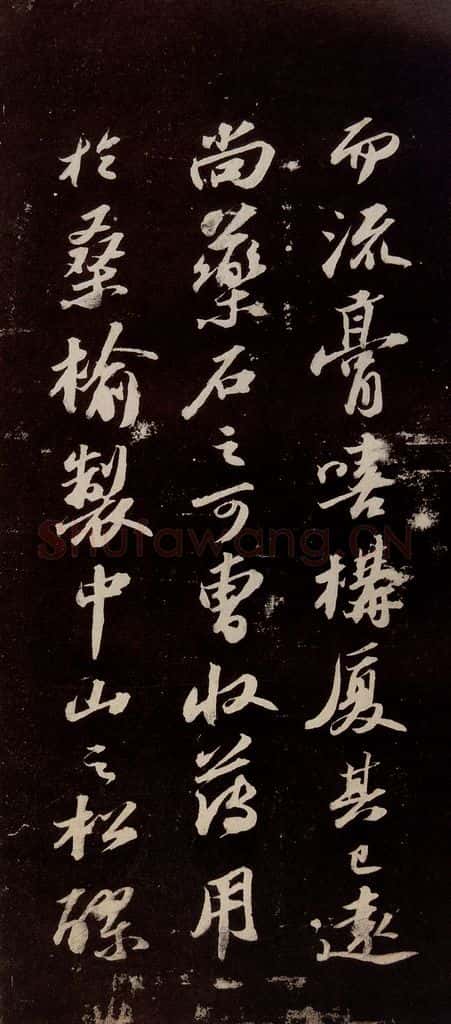 而流膏嘻構厦其已遠
尚藥石之可曹收薄用
於桑榆製中山之松醪
Shufawang.CN